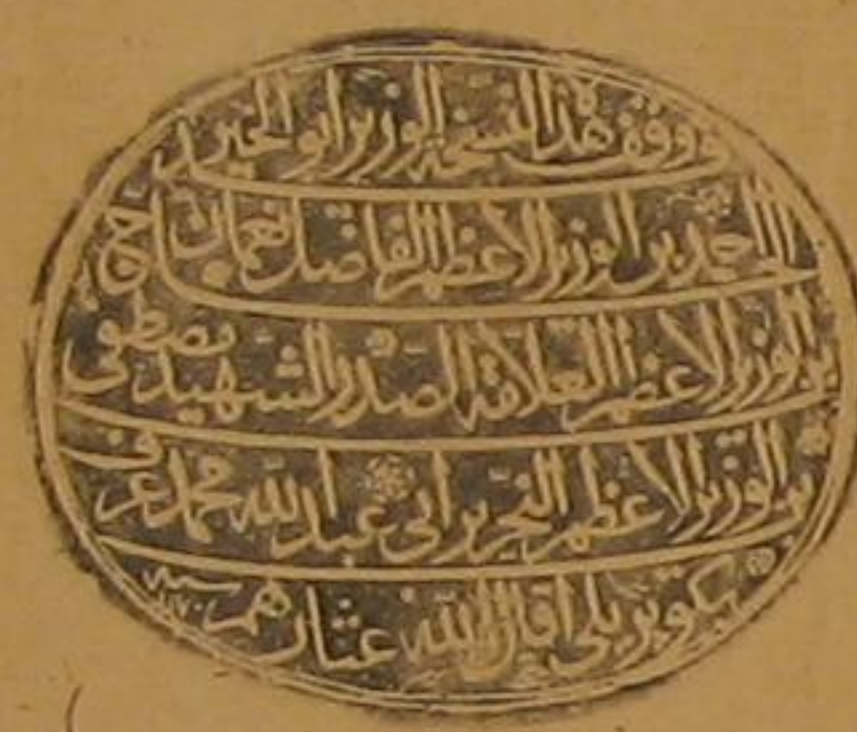 وقف هذا النسخة الوزير ابو الخير
الحاج احمد بن الوزير الاعظم الفاضل نعمان
بن الوزير الاعظم العلامة الصدر الشهيد مصطفى
بن الوزير الاعظم النحرير ابي عبد الله محمد عرف
بكوبريلى اقال الله عثارهم سنة